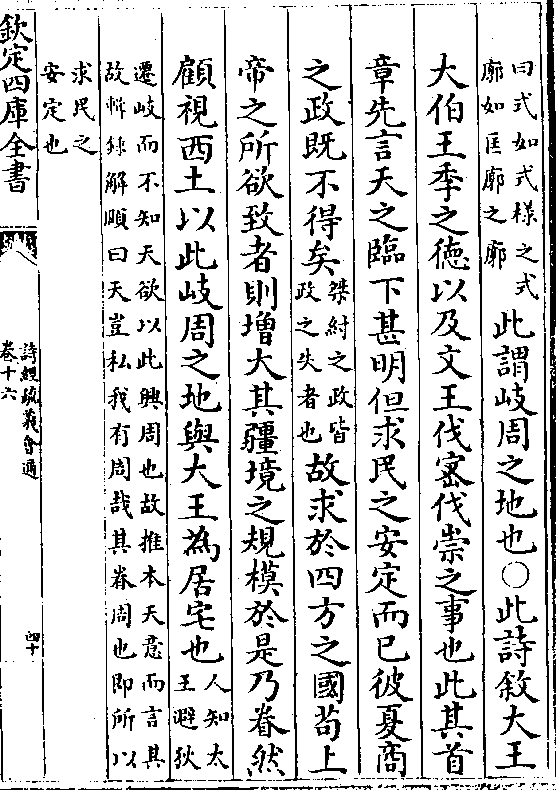 曰式如式様之式
廓如匡廓之廓
此謂岐周之地也○此詩敘大王
大伯王季之德以及文王伐密伐崇之事也此其首
章先言天之臨下甚明但求民之安定而已彼夏商
之政既不得矣
桀紂之政皆
政之失者也
故求於四方之國苟上
帝之所欲致者則增大其疆境之規模於是乃眷然
顧視西土以此岐周之地與大王為居宅也
人知太
王避狄
遷岐而不知天欲以此興周也故推本天意而言其
故輯録解頥曰天豈私我有周哉其眷周也即所以
求民之
安定也
欽定四庫全書
詩經疏義會通
卷十六
四十